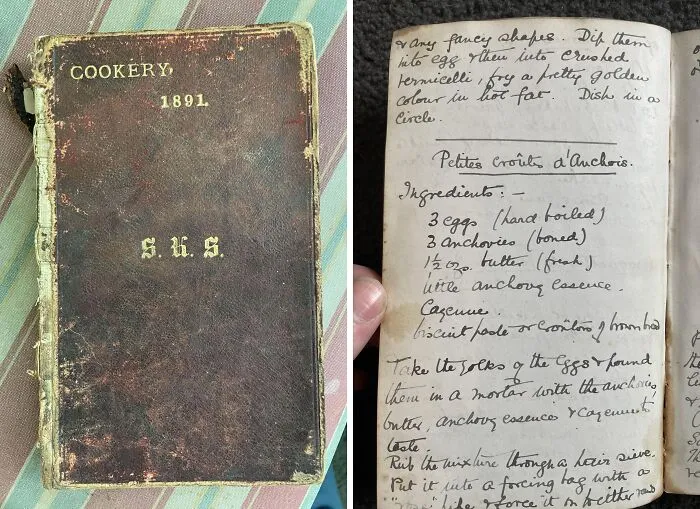 COOKERY,
1891.
S. K. S.
& any fancy shapes. Dip them
into egg & then into crushed
vermicelli, fry a pretty golden
colour in hot fat. Dish in a
circle.
Petites croûtes d'Anchois.
Ingredients: —
3 eggs (hard boiled)
3 anchovies (boned)
1½ ozs. butter (fresh)
little anchovy essence.
Cayenne.
biscuit paste or croûtons of brown bread
Take the yolks of the eggs & pound
them in a mortar with the anchovies
butter, anchovy essence & cayenne to
taste.
Rub the mixture through a hair sieve.
Put it into a forcing bag with a
pipe & force it on to either round